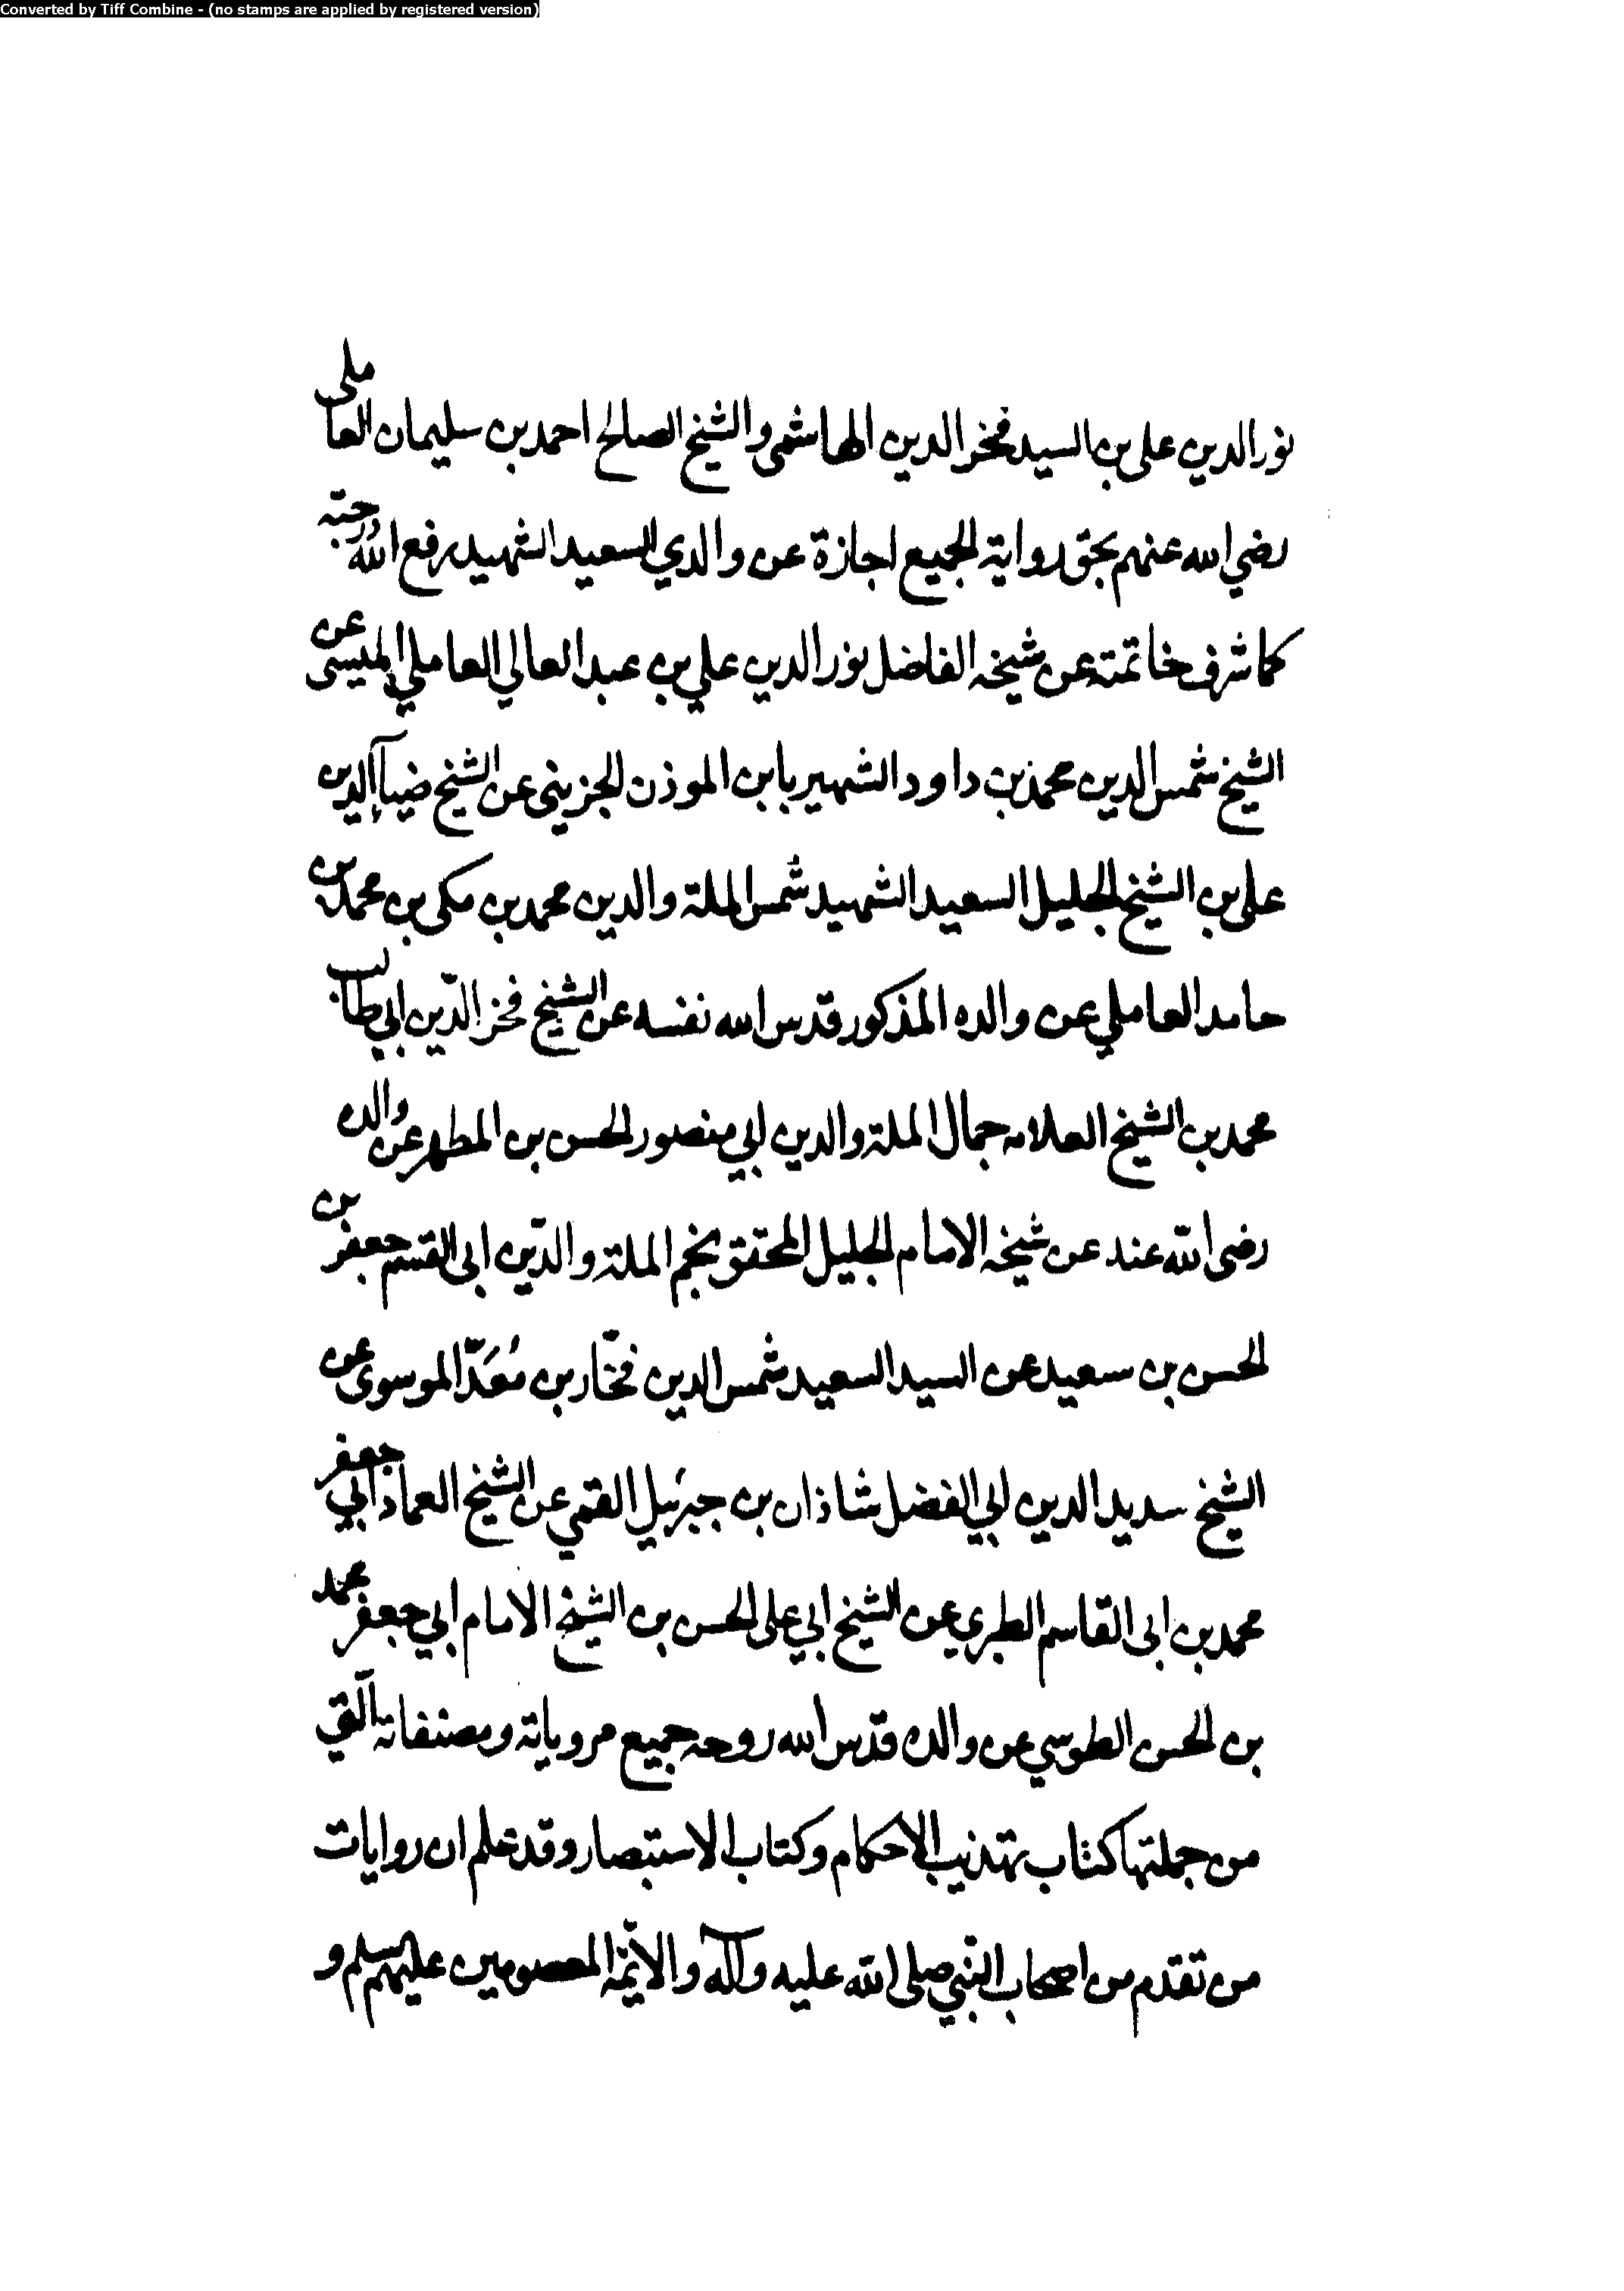 Converted by Tiff Combine - (no stamps are applied by registered version)
نور الدين علي بن السيد فخر الدين الهاشمي والشيخ الصالح احمد بن سليمان العاملي
رضي الله عنهم بحق رواية الجميع اجازة عن والدي السعيد الشهيد رفع الله درجته
كما شرف خاتمته عن شيخه الفاضل نور الدين علي بن عبد العالي العاملي الميسى عن
الشيخ شمس الدين محمد بن داود الشهير بابن الموذن الجزينى عن الشيخ ضياآ الدين
علي بن الشيخ الجليل السعيد الشهيد شمس الملة والدين محمد بن مكى بن محمد بن
حامد العاملي عن والده المذكور قدس الله نفسه عن الشيخ فخر الدّين ابي طالب
محمد بن الشيخ العلامه جمال الملة والدين ابي منصور الحسن بن المطهر عن والده
رضى الله عنه عن شيخه الامام الجليل المحقق نجم الملة والدّين ابى القسم جعفر بن
الحسن بن سعيد عن السيد السعيد شمس الدين فخّار بن مُعَدّ الموسوى عن
الشيخ سديد الدين ابي الفضل شاذان بن جبرئيل القمي عن الشيخ العماد ابي جعفر
محمد بن ابى القاسم الطبري عن الشيخ ابي على الحسن بن الشيخ الامام ابي جعفر محمد
بن الحسن الطوسي عن والده قدّس الله روحه جميع مروياته ومصنفاته الّتي
من جملتها كتاب تهذيب الاحكام وكتاب الاستبصار وقد علم ان روايات
من تقدم من اصحاب النّبي صلى الله عليه وآله والائمّة المعصومين عليهم السلم و